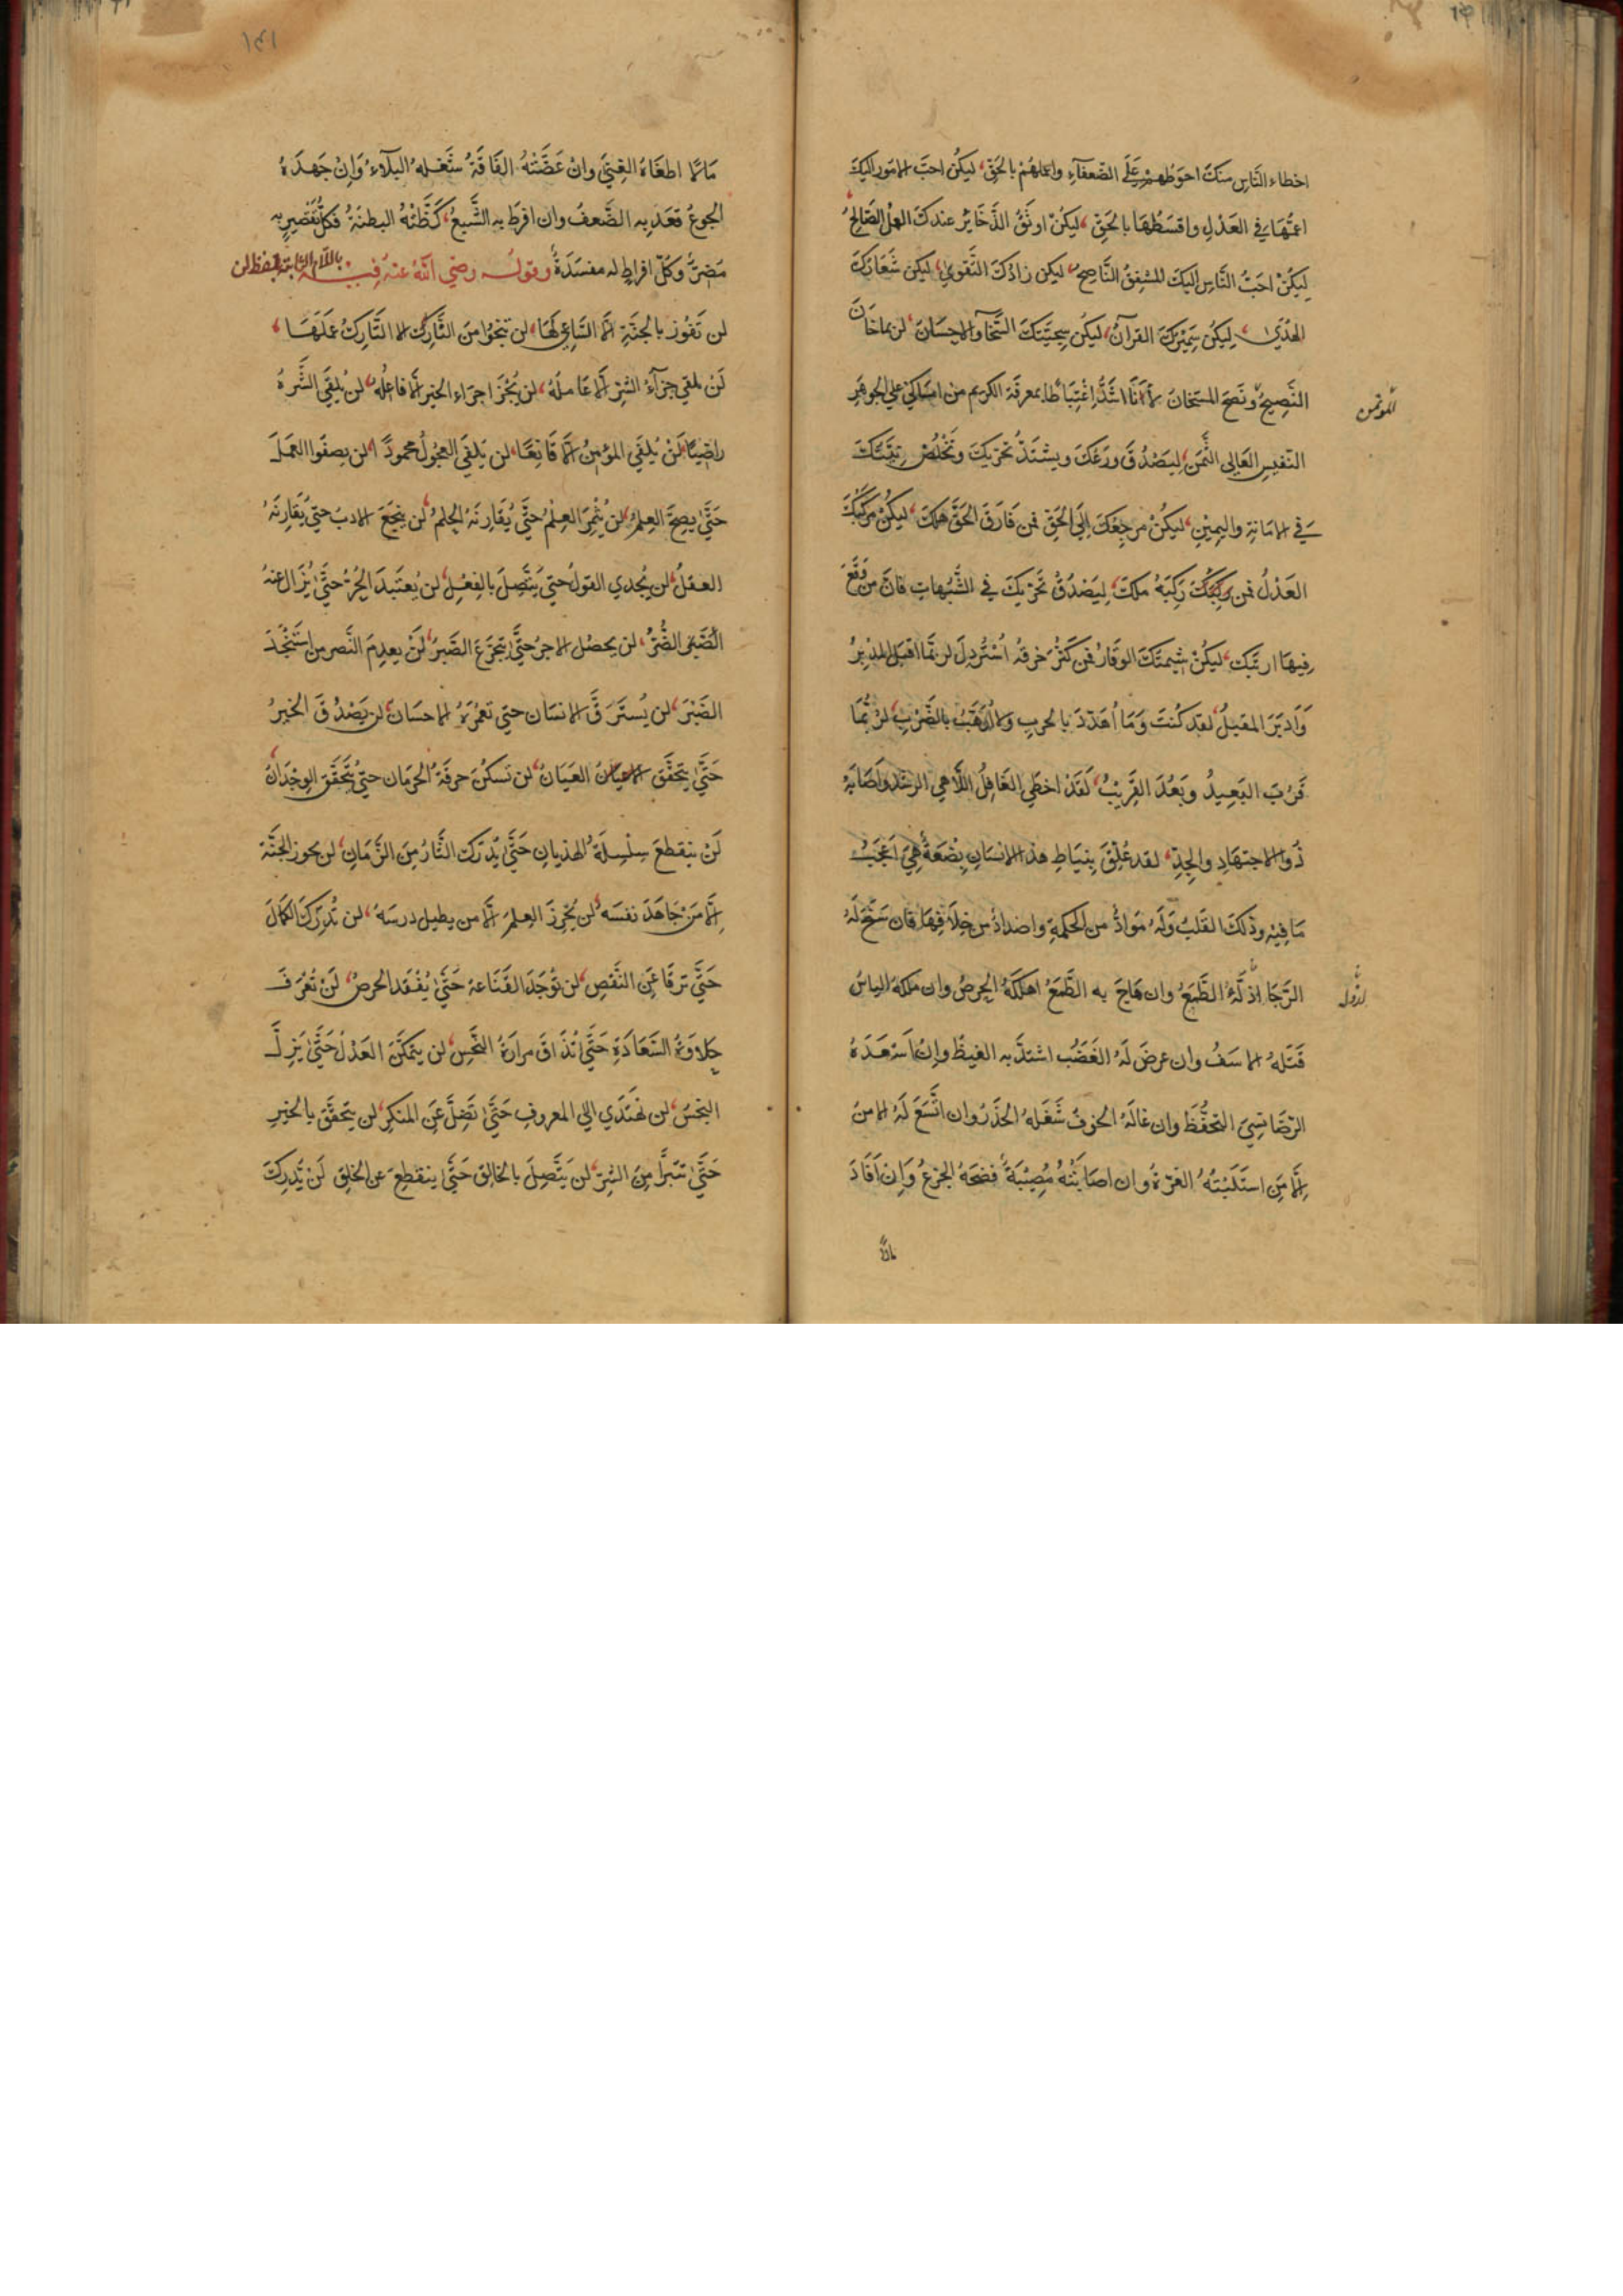 اخطاء النَّاسِ منكَ احوَطُهمْ عَلَى الضّعفآءِ واعملهُمْ بالحَقِّ، ليكُن احبّ الامُور اليكَ
اعمُّهَا فِي العَدْلِ واقسَطُهَا بالحَقِّ، ليكُنْ اوثَقُ الذّخَايُر عندكَ العملُ الصَّالِحُ
لِيَكُنْ احَبُّ النَّاسِ اليكَ المشفِقُ النَّاصِحُ، ليكن زادُكَ التَّقوى، ليكن شعَارُكَ
الهُدَى، لِيَكُن سَمِيْرُكَ القرآنُ، ليكُن سجيّتكَ السَّخآ والاحسَانُ، لربماخَانَ
النَّصِيحُ ونَصَحَ المستخانُ لأنَا اشَدُّ اغْتِبَاطًا بمعرفَة الكريم من امسَاكى على الجوهَر
المؤتمن
النّفيسِ الغَالى الثَّمَن، لِيَصْدُقَ ورَعُكَ ويشتَدَّ تحريكَ وتَخْلُصْ نِيَّتكَ
فِي الامَانةِ واليمِيْنِ، ليكُنْ مرجِعُكَ اِلَى الحَقِّ فمن فَارَقَ الحَقَّ هلكَ، ليكُنْ مَركَبُكَ
العَدْلُ فمن رَكِبَهُ ملكَ، لِيَصْدُقْ تَحَرِّيكَ فِي الشُّبُهاتِ فَانَّ منْ وَقَعَ
فِيهَا ارتَبَك، ليكُنْ شيمتُكَ الوقَارُ فمن كثُرَ خرقهُ اُسْتُرذِلَ لربّمَا اقبَلَ المدْبِرُ
وَادبَرَ المقبلُ، لقد كُنتُ وَمَا اُهدَّدُ بالحربِ ولا اُرهَّبُ بالضَّرْبِ، لرُبَّمَا
قَرُبَ البَعِيدُ وبَعُدَ القَرِيْبُ، لَقَدْ اخطَى الغَافِلُ اللَّاهى الرشَدَ واَصَابَهُ
ذُوا الاجتهَادِ والجِدِّ، لقد عُلِّقَ بِنِيَاطِ هذ الانسَانِ بِضْعَةٌ هِيَ اَعْجَبُ
مَا فِيْهِ وذلكَ القَلبُ وَلَهُ مَوَادٌّ من الحكمةِ واضدادٌ من خِلافِهَا فَان سَنَحَ لَهُ
الرَّجَا اذَلَّهُ الطَّمَعُ وان هَاجَ به الطَّمَعُ اهلكَهُ الحِرصُ وان ملكهُ الياسُ
قَتلَهُ الاسَفُ وان عرضَ لَهُ الغَضَبُ اشتدَّ به الغيظُ وانْ اسْعَدَهُ
الرّضَا نسِيَ التحفُّظَ وان غالَهُ الخوفُ شَغَلهُ الحَذَرُ وان اتَّسَعَ لَهُ الامنُ
اِلّا مَنِ استَلَبَتهُ الغرّةُ وان اصَابَتْهُ مُصِيْبَةٌ فضَحَهُ الجزعُ وَاِن اَفَادَ
مالاً
١٤١
مَالًا اطغَاهُ الغِنَى وانْ عَضَّتْهُ الفَاقَةُ شَغَلهُ البلَآءُ وَاِنْ جَهدَهُ
الجوعُ قعَدَ بِهِ الضَّعفُ وان افرَطَ بهِ الشَّبعُ كَظَّتْهُ البطنَةُ فَكلُّ تقْصِيرٍ بهِ
مَضِرٌّ وكلّ افراطٍ له مفسَدَةٌ، وقولُه رضِي اللهُ عنهُ فيه باللام الثابتة بلفظ لن
لن تَفُوز بالجنَّةِ اِلّا السَّاعِى لَهَا، لن تنجُوا من النَّار الا التَّاركُ عَملَهَا،
لَنْ يلقى جزآءَ الشرّ اِلّا عَاملهُ، لن يُجْزَا جزَاءَ الخير اِلّا فَاعِلُه، لنْ يُلقَى الشَّرِهُ
راضِيًا، لَنْ يُلقَى المؤمنُ اِلّا قَانِعًا، لن يَلقَى العجُولُ محمودًا، لن يصفُوا العَملُ
حَتَّى يصِحَّ العِلمُ، لن يُثمِرَ العِلْمُ حتَّى يُقَارنَهُ الحِلمُ، لن ينجَعَ الادبُ حتى يُقَارِنَهُ
العقلُ، لن يُجدي القولُ حتى يتَّصِلَ بالفِعْلِ، لن يُعتَبدَ الحُرُّ حتَّى يُزَال عنهُ
الضُّرُّ، لن يحصُل الاجرُ حتَّى يتجَرَّعَ الصَّبرُ، لَنْ يعدِمَ النَّصر من استَنْجَدَ
الصَّبْرَ، لن يُستَرَقَّ الانسَان حتى تغمُرَهُ الاحسَانُ، لن يَصْدُقَ الخبَرُ
حَتَّى يتحَقَّقَ العَيَانُ، لن تَسكُنَ حرقَةُ الحرْمَانِ حتى يتَحَقَّق الوجْدَانُ
لَنْ ينقطعَ سِلْسِلَةُ الهذيانِ حَتَّى يُدْرَكَ الثَّارُ مِنَ الزَّمَانِ، لن يحوز الجنَّة
اِلّا مَنْ جَاهَدَ نفسَه، لن يُحْرِزَ العِلمَ اِلّا من يطيل درسَهُ، لن تُدْرِكَ الكمَالَ
حَتَّى ترقَا عَنِ النَّقصِ، لن تُوْجَدَ القَنَاعة حَتَّى يُفْقَد الحرصُ، لَنْ تُعْرَفَ
حلاوَةُ السّعَادَةِ حَتَّى تُذَاقَ مرارَةُ النّحسِ، لن يتمَكَّنَ العَدْلُ حَتَّى يَزِلَّ
البخسُ، لن تَهتَدي الى المعروفِ حَتَّى تَضِلَّ عَنِ المنكرِ، لن يتحقَّقَ بالخير
حَتَّى تتبَرَّا مِنَ الشرِّ، لن يَتَّصِلَ بالخالِق حَتَّى ينقطِعَ عن الخلق لَنْ يُدرِكَ